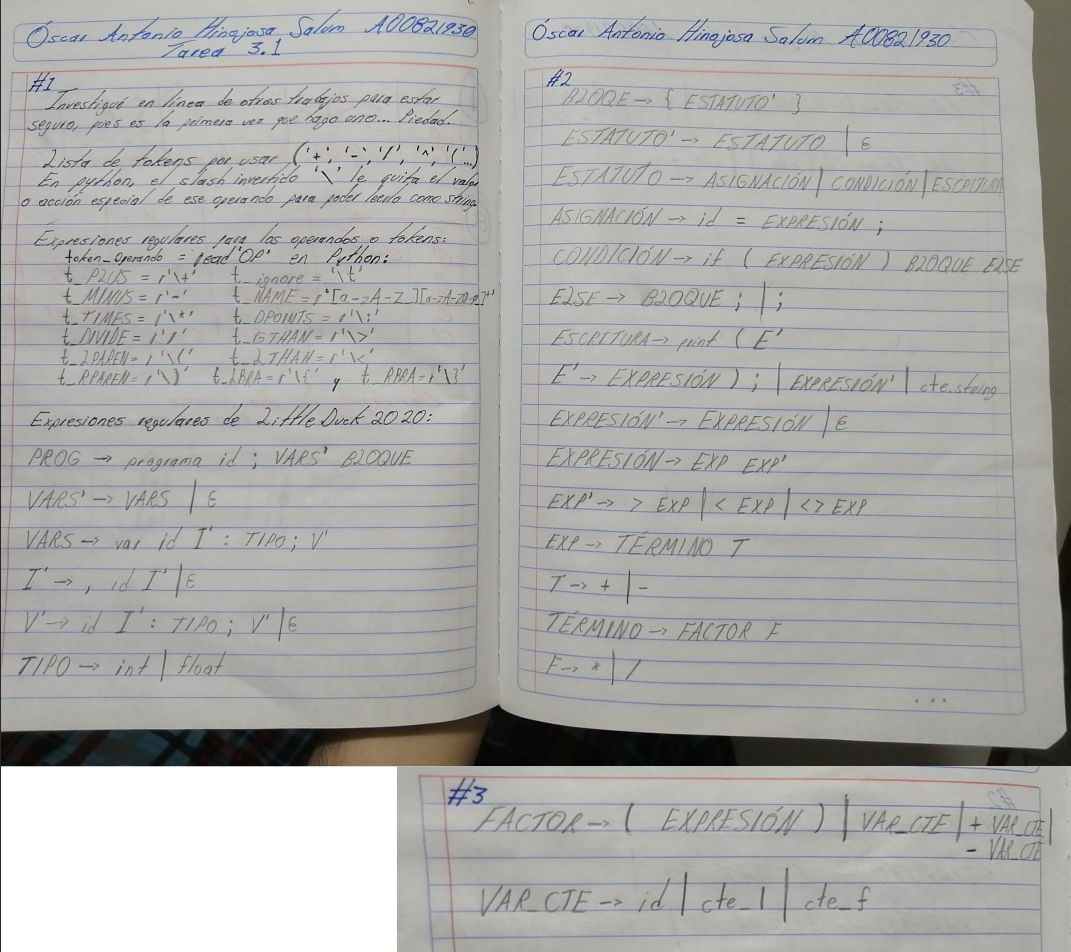 Óscar Antonio Hinojosa Salum A00821930
Tarea 3.1
#1
Investigué en línea de otros trabajos para estar
seguro, pues es la primera vez que hago uno... Piedad.
Lista de tokens por usar ('+', '-', '/', '^', '('...)
En python, el slash invertido '\' le quita el valor
o acción especial de ese operando para poder leerlo como string.
Expresiones regulares para los operandos o tokens:
token_Operando = read'OP' en Python:
t_PLUS = r'\+' t_ignore = '\t'
t_MINUS = r'-' t_NAME = r'[a-zA-Z_][a-zA-Z0-9_]*'
t_TIMES = r'\*' t_DPOINTS = r'\:'
t_DIVIDE = r'/' t_GTHAN = r'\>'
t_LPAREN = r'\(' t_LTHAN = r'\<'
t_RPAREN = r'\)' t_LBRA = r'\{' y t_RBRA = r'\}'
Expresiones regulares de Little Duck 2020:
PROG → programa id ; VARS' BLOQUE
VARS' → VARS | ε
VARS → var id I' : TIPO ; V'
I' → , id I' | ε
V' → id I' : TIPO ; V' | ε
TIPO → int | float
Óscar Antonio Hinojosa Salum A00821930
#2
BLOQE → { ESTATUTO' }
ESTATUTO' → ESTATUTO | ε
ESTATUTO → ASIGNACIÓN | CONDICIÓN | ESCRITURA
ASIGNACIÓN → id = EXPRESIÓN ;
CONDICIÓN → if ( EXPRESIÓN ) BLOQUE ELSE
ELSE → BLOQUE ; | ;
ESCRITURA → print ( E'
E' → EXPRESIÓN ) ; | EXPRESIÓN' | cte.string
EXPRESIÓN' → EXPRESIÓN | ε
EXPRESIÓN → EXP EXP'
EXP' → > EXP | < EXP | <> EXP
EXP → TÉRMINO T
T → + | -
TÉRMINO → FACTOR F
F → * | /
...
#3
FACTOR → ( EXPRESIÓN ) | VAR_CTE | + VAR_CTE |
- VAR_CTE
VAR_CTE → id | cte_I | cte_f